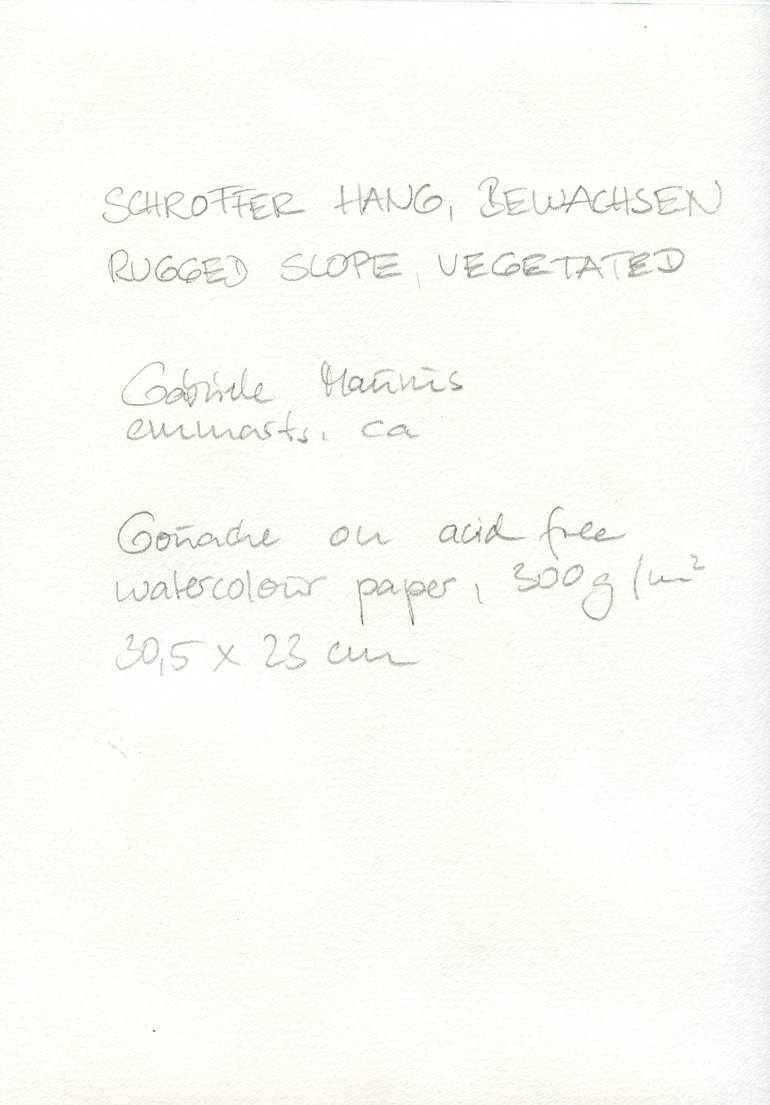 SCHROFFER HANG, BEWACHSEN
RUGGED SLOPE, VEGETATED
Gabriele Maurus
emmarts.ca
Gouache on acid free
watercolour paper, 300g/m²
30,5 x 23 cm